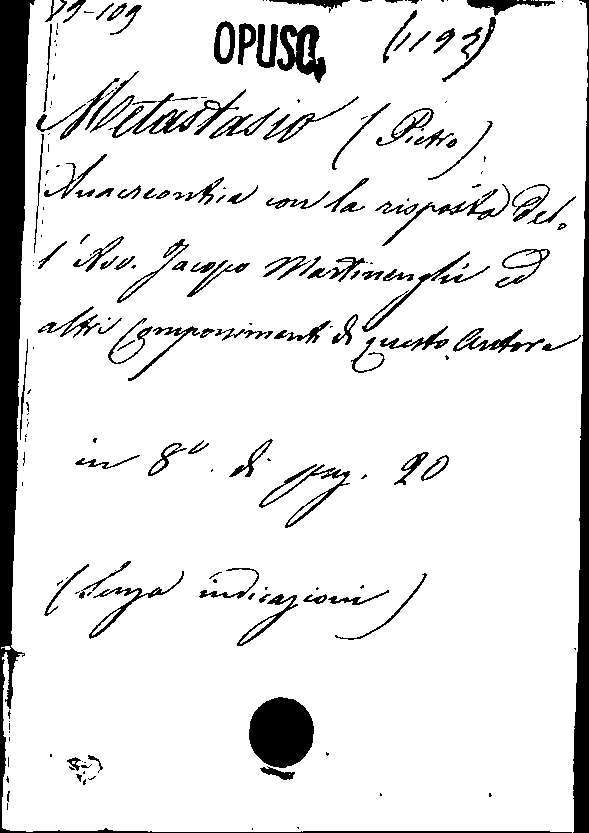 79-109
OPUSC. (1192)
Metastasio (Pietro)
Anacreontica con la risposta del-
l'Avv. Jacopo Martinenghi ed
altri Componimenti di questo Autore
in 8º di pag. 20
(Senza indicazioni)